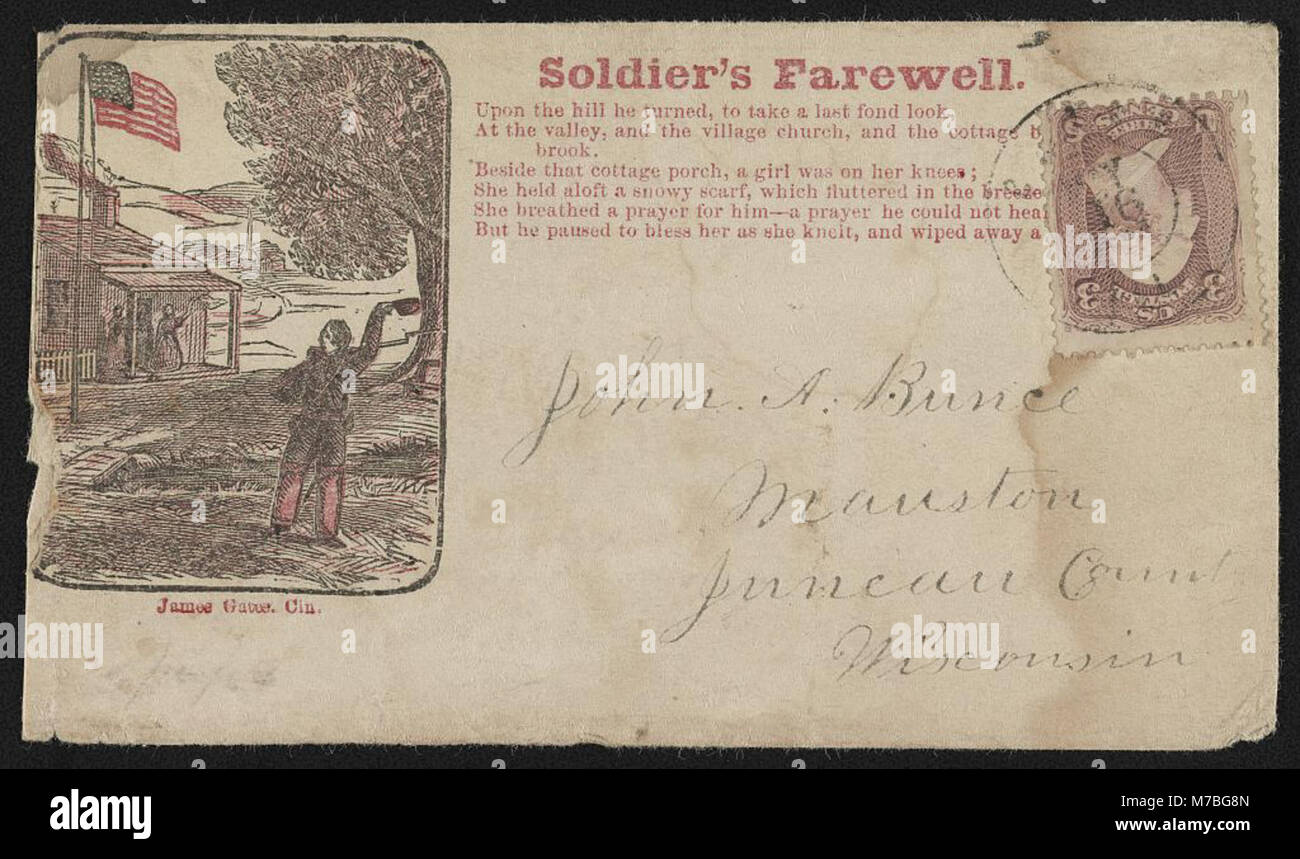 Soldier's Farewell.
Upon the hill he turned, to take a last fond look
At the valley, and the village church, and the cottage b
brook.
Beside that cottage porch, a girl was on her knees;
She held aloft a snowy scarf, which fluttered in the breeze
She breathed a prayer for him—a prayer he could not hear
But he paused to bless her as she knelt, and wiped away a
3 3
U.S.
John. A. Bunce
Mauston
Juneau Count
Wisconsin
James Gates. Cin.
alamy
Image ID: M7BG8N
www.alamy.com